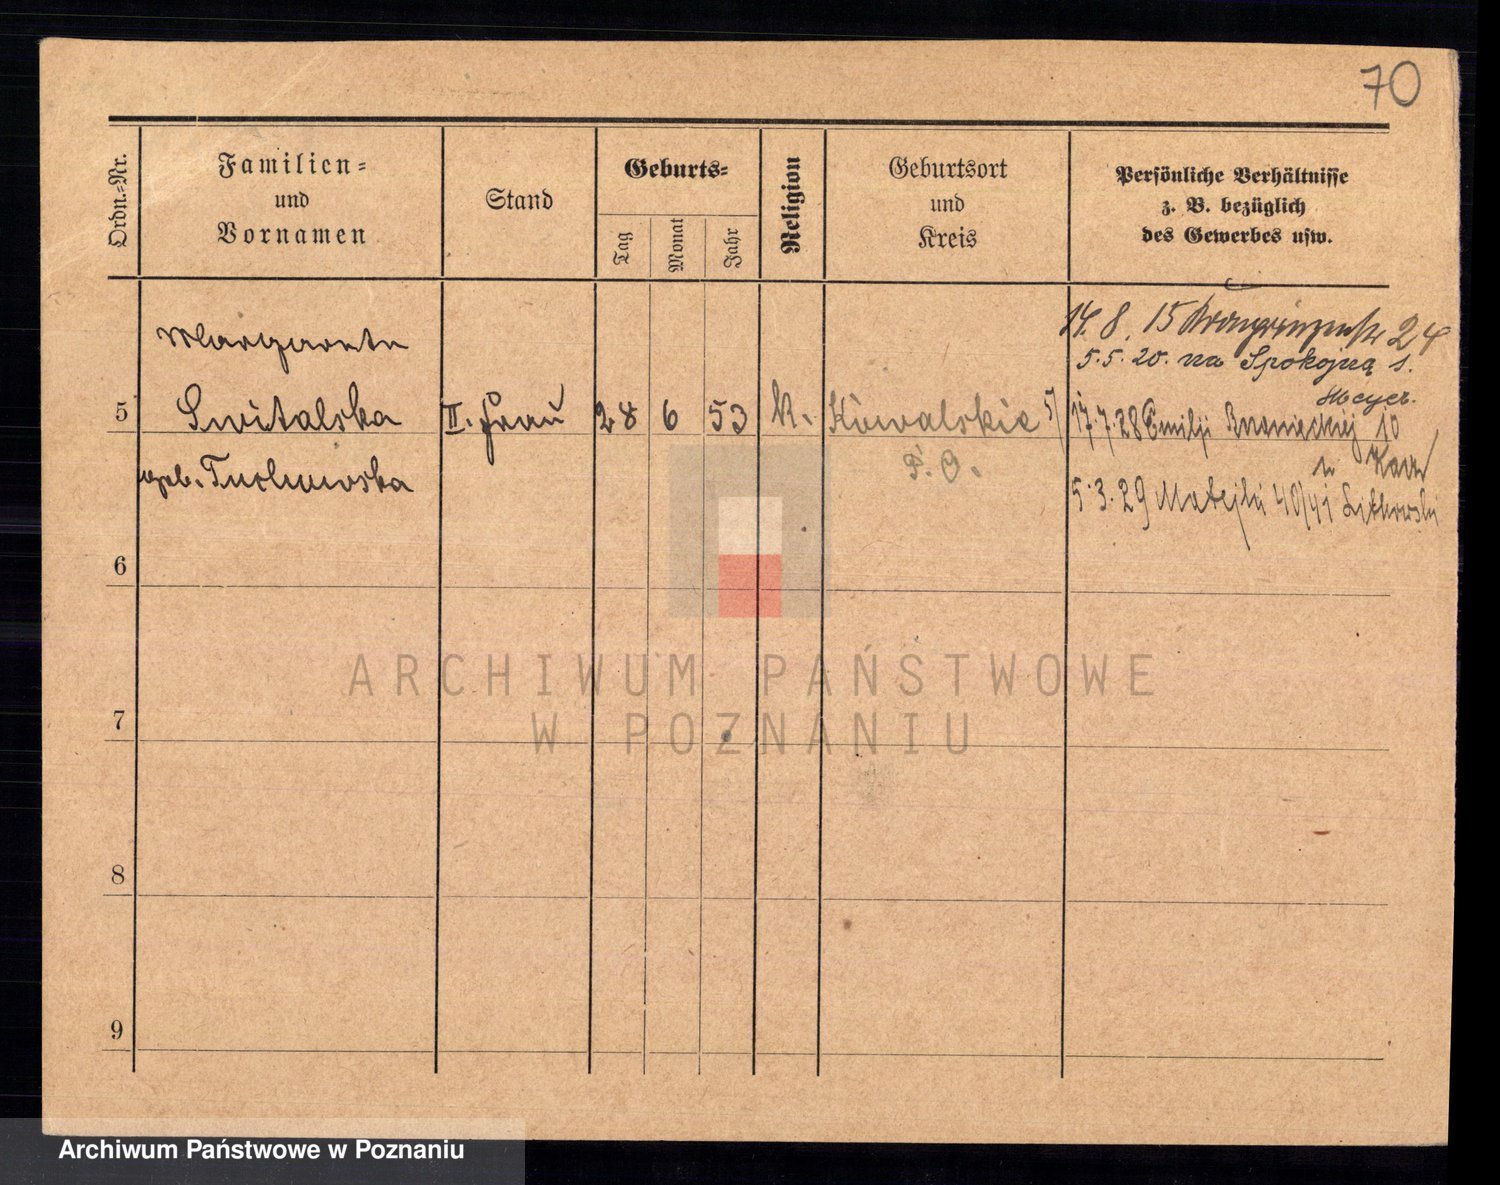 70
Ordn.-Nr.
Familien-
und
Vornamen
Stand
Geburts-
Tag
Monat
Jahr
Religion
Geburtsort
und
Kreis
Persönliche Verhältnisse
z. B. bezüglich
des Gewerbes usw.
14. 8. 15 Kronprinzenstr 24
5.5. 20. na Spokojną 1.
Meyer.
Margarete
5 Switalska II. Frau 28 6 53 k. Kowalskie 5/
17.7.28 Emilji 10
geb.
P. O.
5.3.29 Matejki 40/41
6
7
8
9
ARCHIWUM PAŃSTWOWE
W POZNANIU
Archiwum Państwowe w Poznaniu